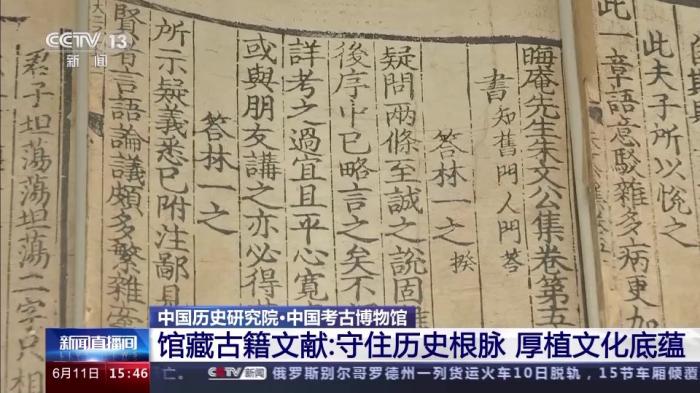 CCTV 13
新闻
此夫子所以悦之
此一章語意駁雜多病更
晦庵先生朱文公集卷第五
書 知舊門人問答
答林一之 揆
疑問兩條至誠之說固
後序中已略言之矣不
詳考之過宜且平心寬
或與朋友講之亦必得
答林一之
所示疑義悉已附注鄙見
賢者言語論議頗多繁雜
君子坦蕩蕩坦蕩二字只相
中国历史研究院·中国考古博物馆
新闻直播间
馆藏古籍文献:守住历史根脉 厚植文化底蕴
6月11日 15:46
CCTV新闻 俄罗斯别尔哥罗德州一列货运火车10日脱轨，15节车厢倾覆